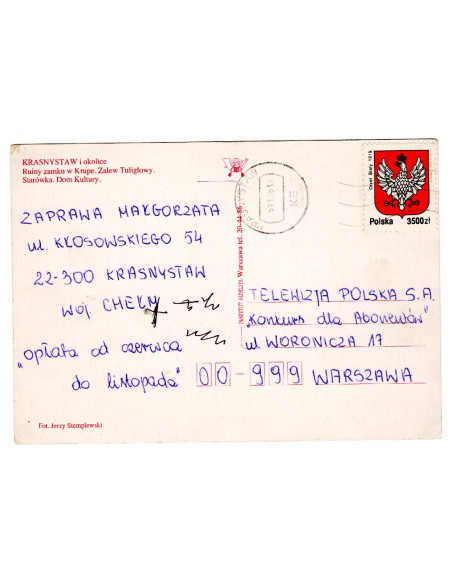 KRASNYSTAW i okolice
Ruiny zamku w Krupe. Zalew Tuligłowy.
Starówka. Dom Kultury.
ZAPRAWA MAŁGORZATA
ul. KŁOSOWSKIEGO 54
22-300 KRASNYSTAW
WOJ. CHEŁM
"opłata od czerwca
do listopada"
Fot. Jerzy Stemplewski
Warszawa tel. 20-44-86
Orzeł Biały 1919
Polska 3500zł
TELEWIZJA POLSKA S.A.
"Konkurs dla Abonentów"
ul WORONICZA 17
00-999 WARSZAWA